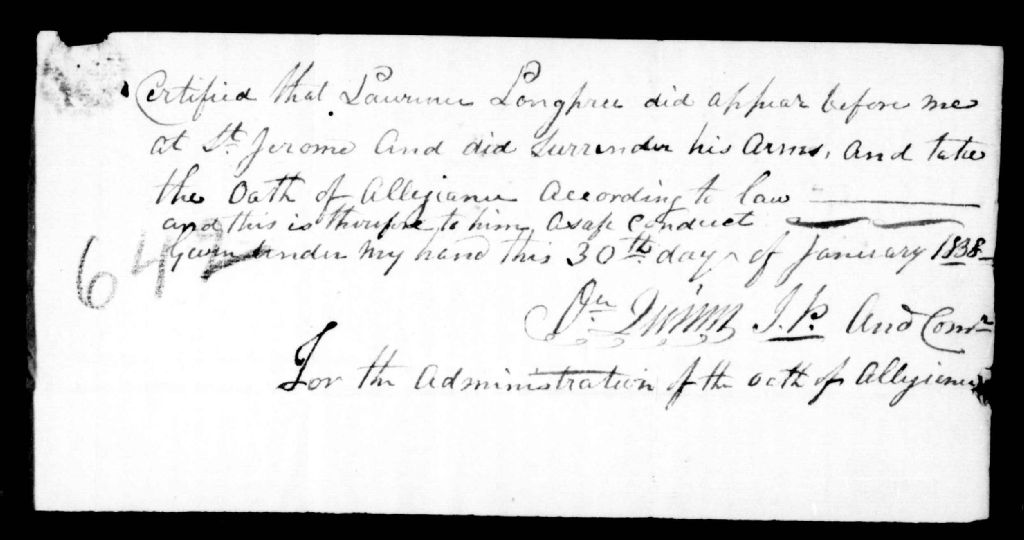 Certified that Lawrence Longpree did appear before me
at St. Jerome and did Surrender his Arms, and take
the Oath of Allegiance according to law
and this is therefore to him a safe conduct
Given under my hand this 30th day of January 1838
647
Quinn J.P. and Comr
For the administration of the oath of Allegiance